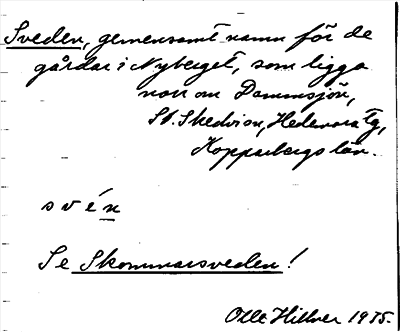 Sveden, gemensamt namn för de
gårdar i Nyberget, som ligga
norr om Dammsjön,
St. Skedvi sn, Hedemora tg,
Kopparbergs län.
s v é n
Se Skommarsveden!
Olle Hillner 1975.